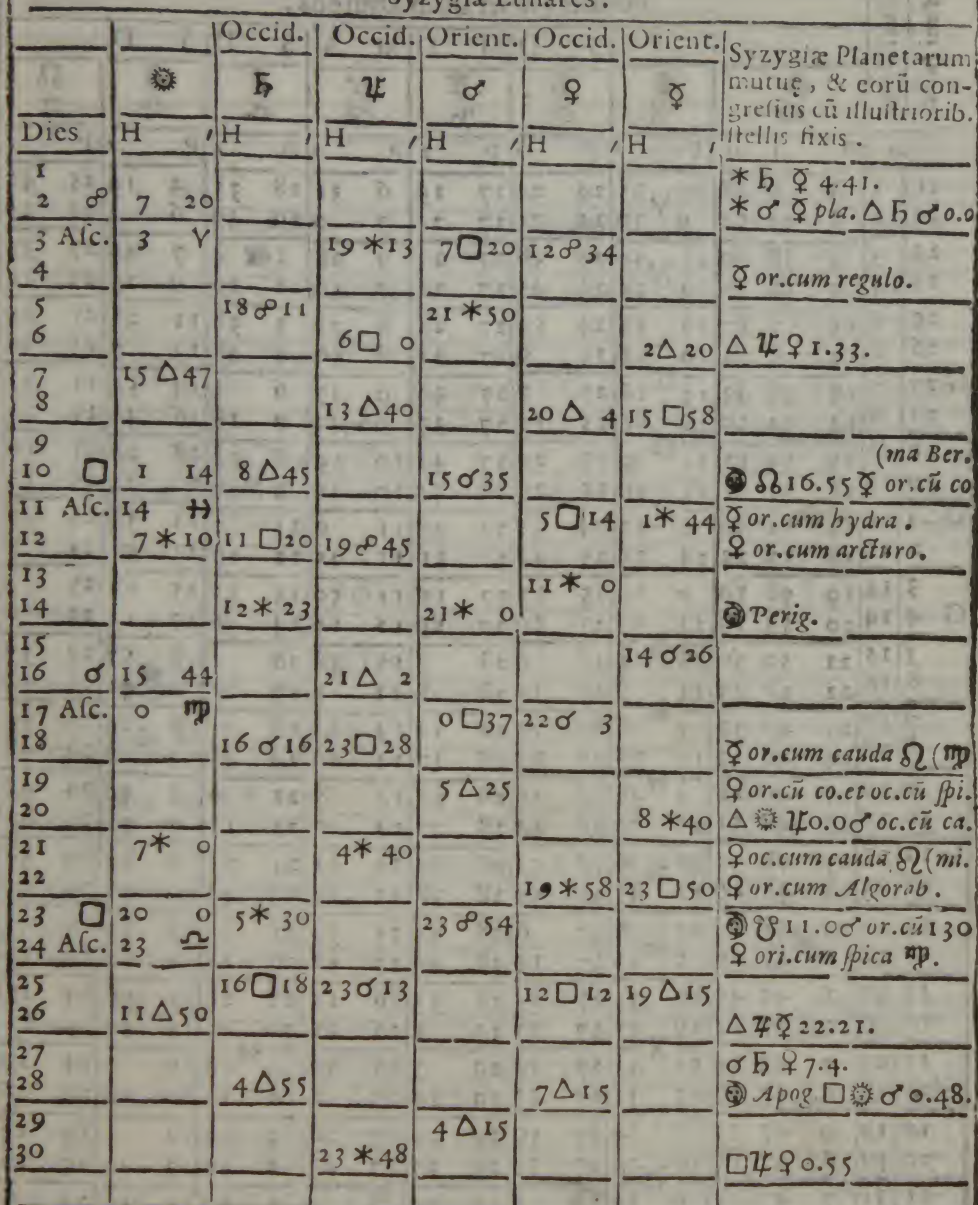 Syzygiæ Lunares.
Occid. Occid. Orient. Occid. Orient. Syzygiæ Planetarum
☉ ♄ ♃ ♂ ♀ ☿ mutuę, & eorū con-
gressus cū illustriorib.
Dies H ′ H ′ H ′ H ′ H ′ H ′ stellis fixis.
1 ⚹ ♄ ☿ 4.41.
2 ☍ 7 20 ⚹ ♂ ☿ pla. △ ♄ ♂ 0.0
3 Asc. 3 ♈ 19 ⚹ 13 7 □ 20 12 ☍ 34
4 ☿ or.cum regulo.
5 18 ☍ 11 21 ⚹ 50
6 6 □ 0 2 △ 20 △ ♃ ♀ 1.33.
7 15 △ 47
8 13 △ 40 20 △ 4 15 □ 58
9 (ma Ber.
10 □ 1 14 8 △ 45 15 ☌ 35 ☽ ☊ 16.55 ☿ or.cū co
11 Asc. 14 ♓ 5 □ 14 1 ⚹ 44 ☿ or.cum hydra.
12 7 ⚹ 10 11 □ 20 19 ☍ 45 ♀ or.cum arcturo.
13 11 ⚹ 0
14 12 ⚹ 23 21 ⚹ 0 ☽ Perig.
15 14 ☌ 26
16 ☌ 15 44 21 △ 2
17 Asc. 0 ♍ 0 □ 37 22 ☌ 3
18 16 ☌ 16 23 □ 28 ☿ or.cum cauda ♌ (♍
19 5 △ 25 ♀ or.cū co.et oc.cū spi.
20 8 ⚹ 40 △ ☉ ♃ 0.0 ♂ oc.cū ca.
21 7 ⚹ 0 4 ⚹ 40 ♀ oc.cum cauda ♌ (mi.
22 19 ⚹ 58 23 □ 50 ♀ or.cum Algorab.
23 □ 20 0 5 ⚹ 30 23 ☍ 54 ☽ ☋ 11.0 ♂ or.cū 130
24 Asc. 23 ♎ ♀ ori.cum spica ♍.
25 16 □ 18 23 ☌ 13 12 □ 12 19 △ 15
26 11 △ 50 △ ♃ ☿ 22.21.
27 ☌ ♄ ♀ 7.4.
28 4 △ 55 7 △ 15 ☽ Apog □ ☉ ♂ 0.48.
29 4 △ 15
30 23 ⚹ 48 □ ♃ ♀ 0.55